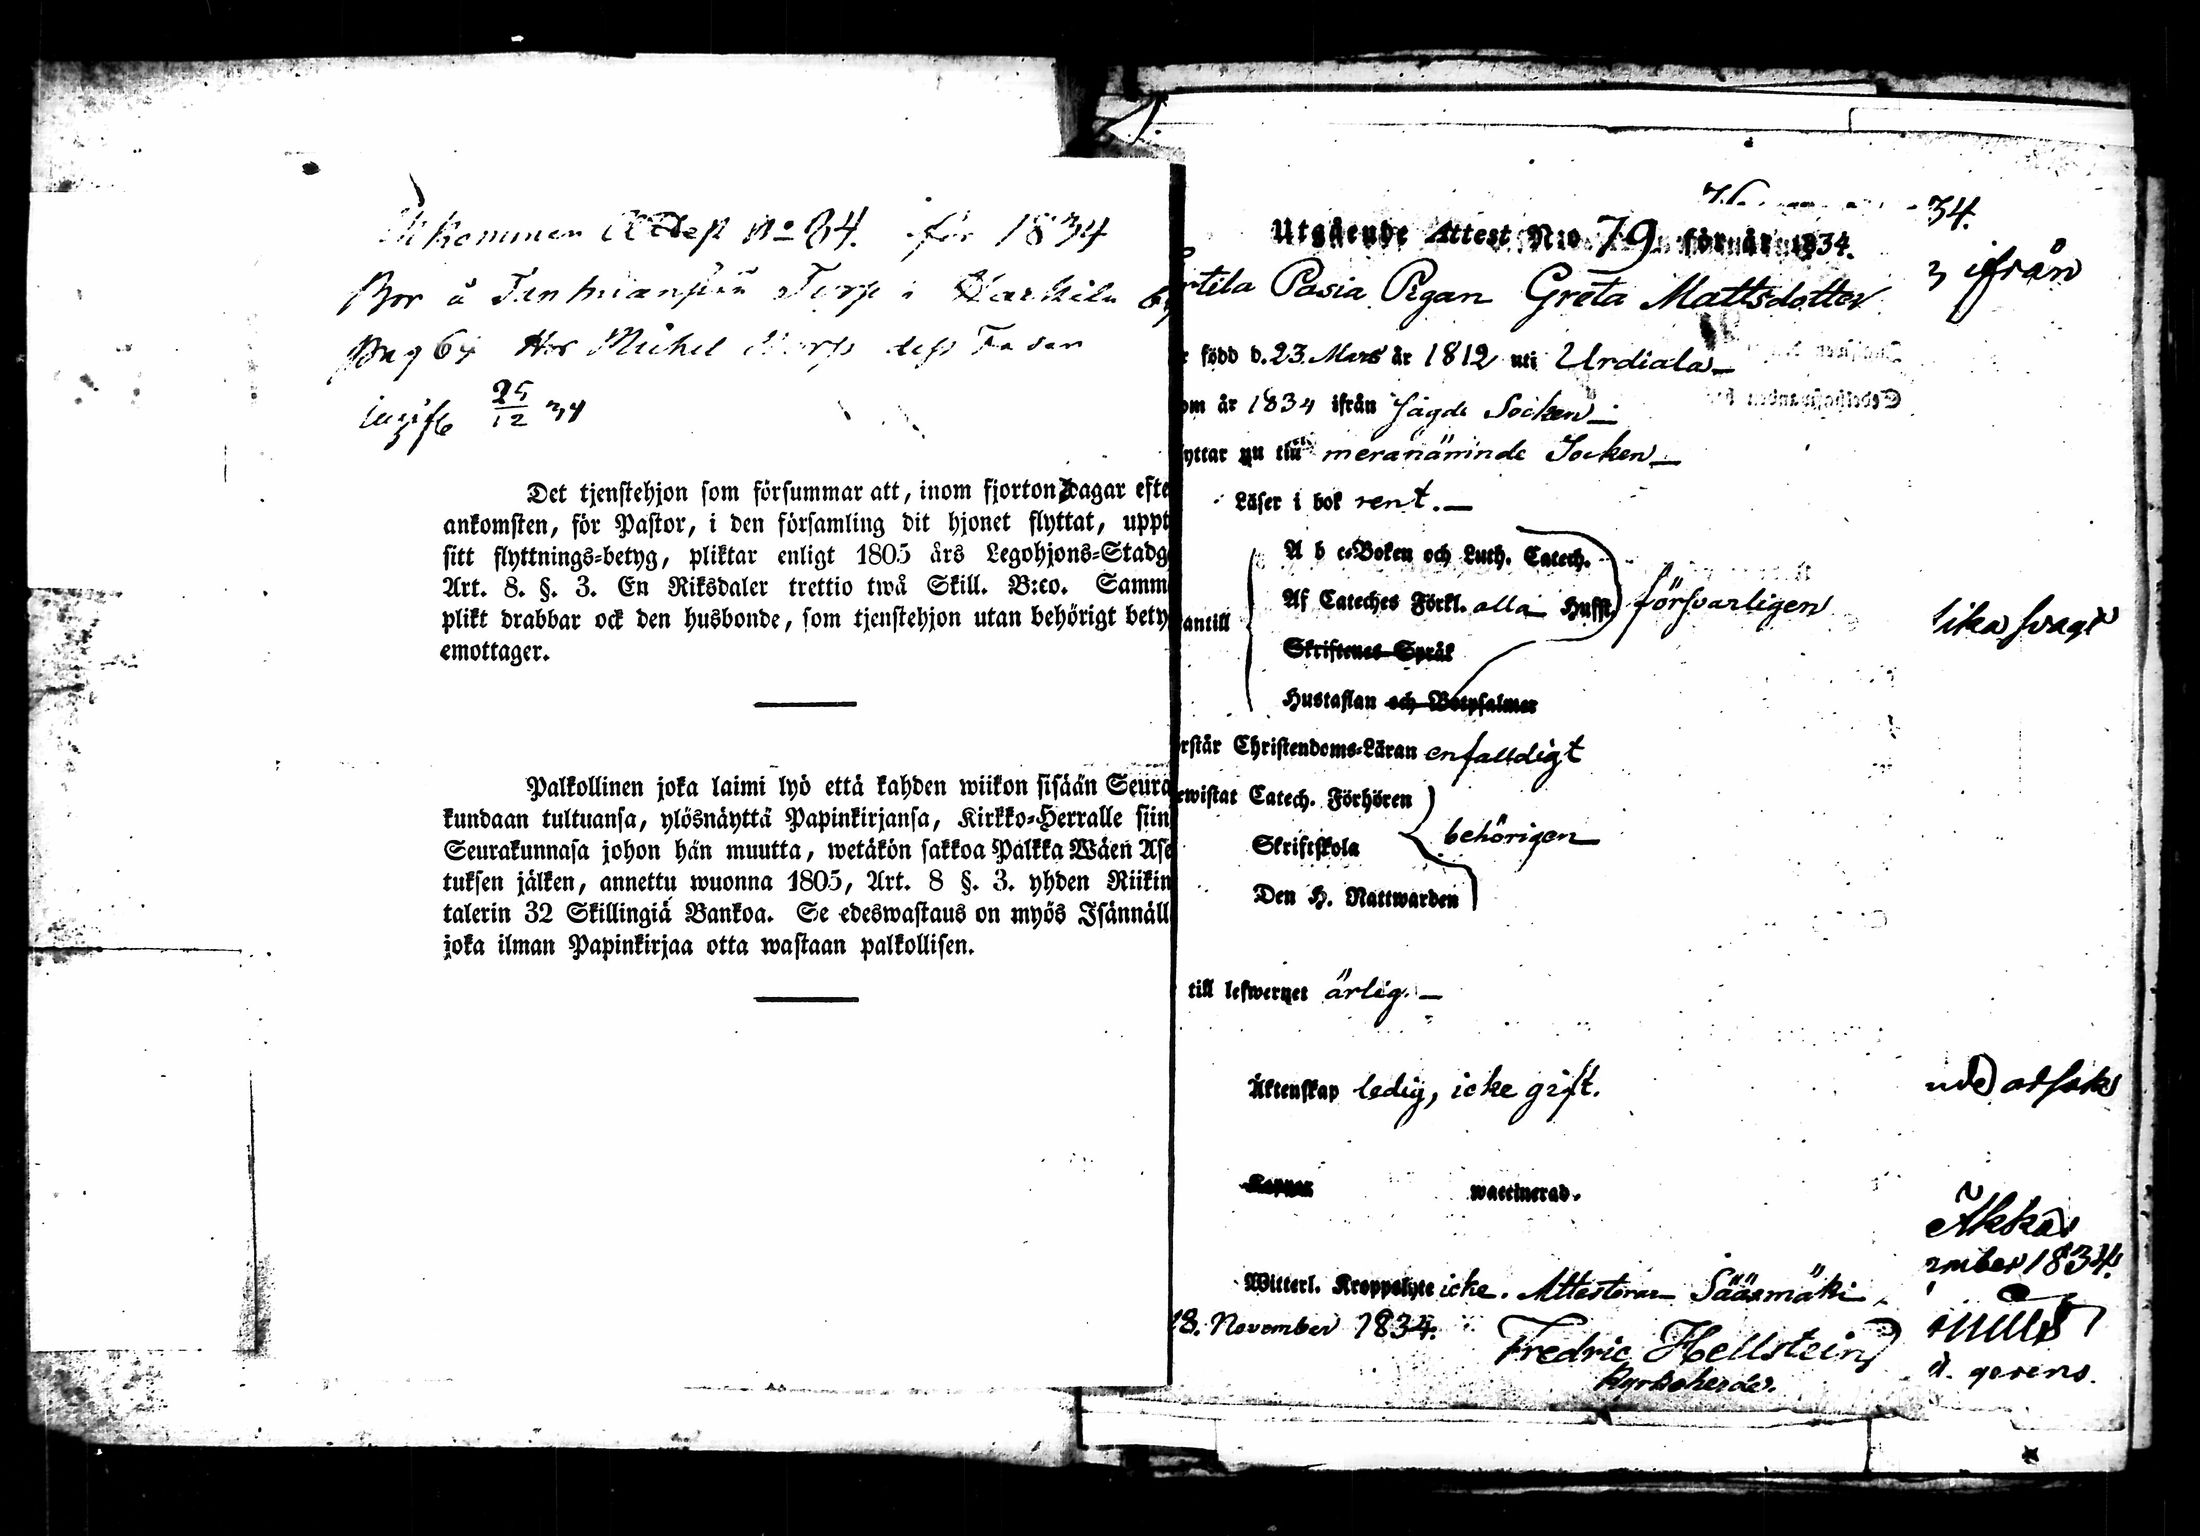 Inkommen Attest No 34. för 1834
Bor å Torp i
pag 64 Hos Michel dess Fader
25/12 34
Det tjenstehjon som försummar att, inom fjorton dagar efte
ankomsten, för Pastor, i den församling dit hjonet flyttat, uppt
sitt flyttnings=betyg, pliktar enligt 1805 års Legohjons=Stadg
Art. 8. §. 3. En Riksdaler trettio twå Skill. B:co. Samm
plikt drabbar ock den husbonde, som tjenstehjon utan behörigt bety
emottager.
Palkollinen joka laimi lyö että kahden wiikon sisään Seura
kundaan tultuansa, ylösnäyttä Papinkirjansa, Kirkko=Herralle siin
Seurakunnasa johon hän muutta, wetäkön sakkoa Palkka Wäen Ase
tuksen jälken, annettu wuonna 1805, Art. 8 §. 3. yhden Riikin
talerin 32 Skillingiä Bankoa. Se edeswastaus on myös Isännäll
joka ilman Papinkirjaa otta wastaan palkollisen.
Utgående Attest N:o 79 för år 1834.
rtila Pasia Pigan Greta Mattsdotter
r född d. 23 Mars år 1812 uti Urdiala
om år 1834 ifrån sagde Socken
yttar nu till meranämnde Socken
Läser i bok rent.
A b c=Boken och Luth. Catech.
Af Cateches Förkl. alla Hufft. försvarligen
antill
Skriftenes Språk
Hustaflan och Botpsalmer
rstår Christendoms=Läran enfalldigt
ewistat Catech. Förhören
Skriftskola behörigen
Den H. Nattwarden
till lefwernet ärlig.
Äktenskap ledig, icke gift.
waccinerad.
Witterl. Kroppslyte icke. Attesterar Sääxmäki
18. November 1834.
Fredric Hellstein
Kyrkoherde.
34.
ifrån
lika svagt
Akkas
ember 1834.